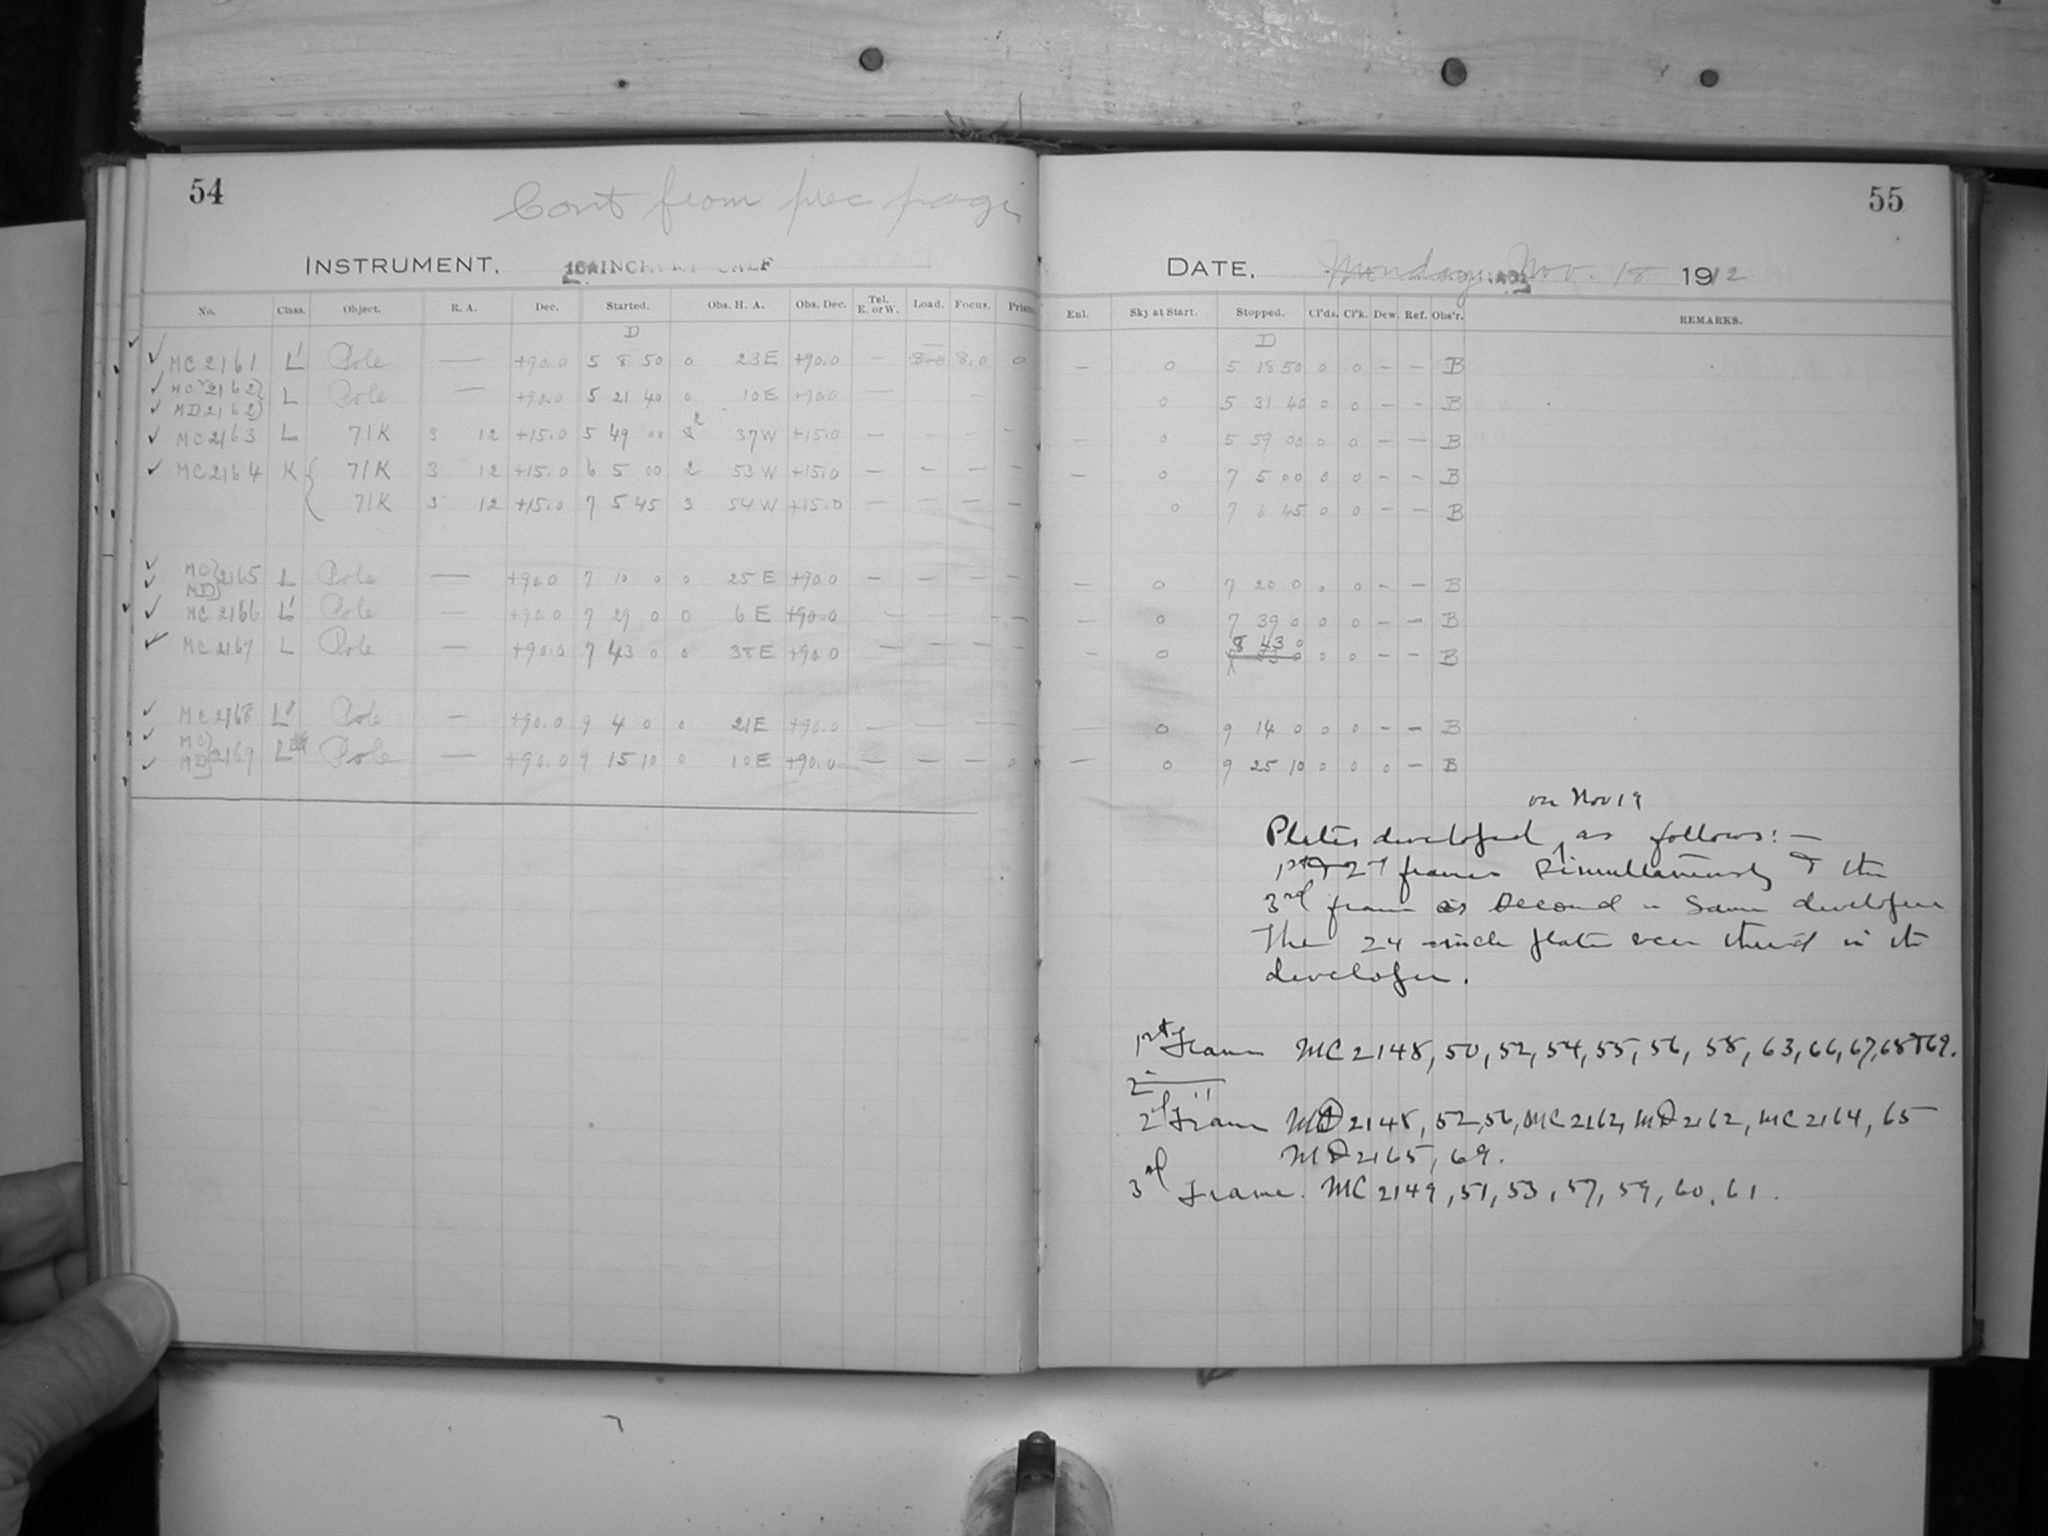 54
Cont from prec page
INSTRUMENT.
No. Class. Object. R. A. Dec. Started. Obs. H. A. Obs. Dec. Tel. E. or W. Load. Focus. Prism
D
MC 2161 L' Pole — +90.0 5 8 50 0 23 E +90.0 — 8.0 8.0 0
MC 2162 } L Pole — +90.0 5 21 40 0 10 E +90.0 —
MD 2162 }
MC 2163 L 71K 3 12 +15.0 5 49 00 2 37 W +15.0 — — — —
MC 2164 K { 71K 3 12 +15.0 6 5 00 2 53 W +15.0 — — — —
71K 3 12 +15.0 7 5 45 3 54 W +15.0 — — — —
MC } 2165 L Pole — +90.0 7 10 0 0 25 E +90.0 — — — —
MD }
MC 2166 L' Pole — +90.0 7 29 0 0 6 E +90.0 — — — —
MC 2167 L Pole — +90.0 7 43 0 0 38 E +90.0 — — — —
MC 2168 L' Pole — +90.0 9 4 0 0 21 E +90.0 — — — —
MC } 2169 L Pole — +90.0 9 15 10 0 10 E +90.0 — — — 0
MD }
55
DATE. Monday, Nov. 18 1912
Enl. Sky at Start. Stopped. Cl'ds. Cl'k. Dew. Ref. Obs'r. REMARKS.
D
— 0 5 18 50 0 0 — — B
0 5 31 40 0 0 — — B
— 0 5 59 00 0 0 — — B
— 0 7 5 00 0 0 — — B
0 7 6 45 0 0 — — B
— 0 7 20 0 0 0 — — B
— 0 7 39 0 0 0 — — B
8 43 0
— 0 0 0 — — B
— 0 9 14 0 0 0 — — B
— 0 9 25 10 0 0 0 — B
on Nov 19
Plates developed as follows: —
1st & 2d frames simultaneously & the
3rd frame as second in same developer
The 24 inch plates were third in the
developer.
1st Frame MC 2148, 50, 52, 54, 55, 56, 58, 63, 66, 67, 68 & 69.
2
2d Frame MD 2148, 52, 56, MC 2162, MD 2162, MC 2164, 65
MD 2165, 69.
3d Frame. MC 2149, 51, 53, 57, 59, 60, 61.